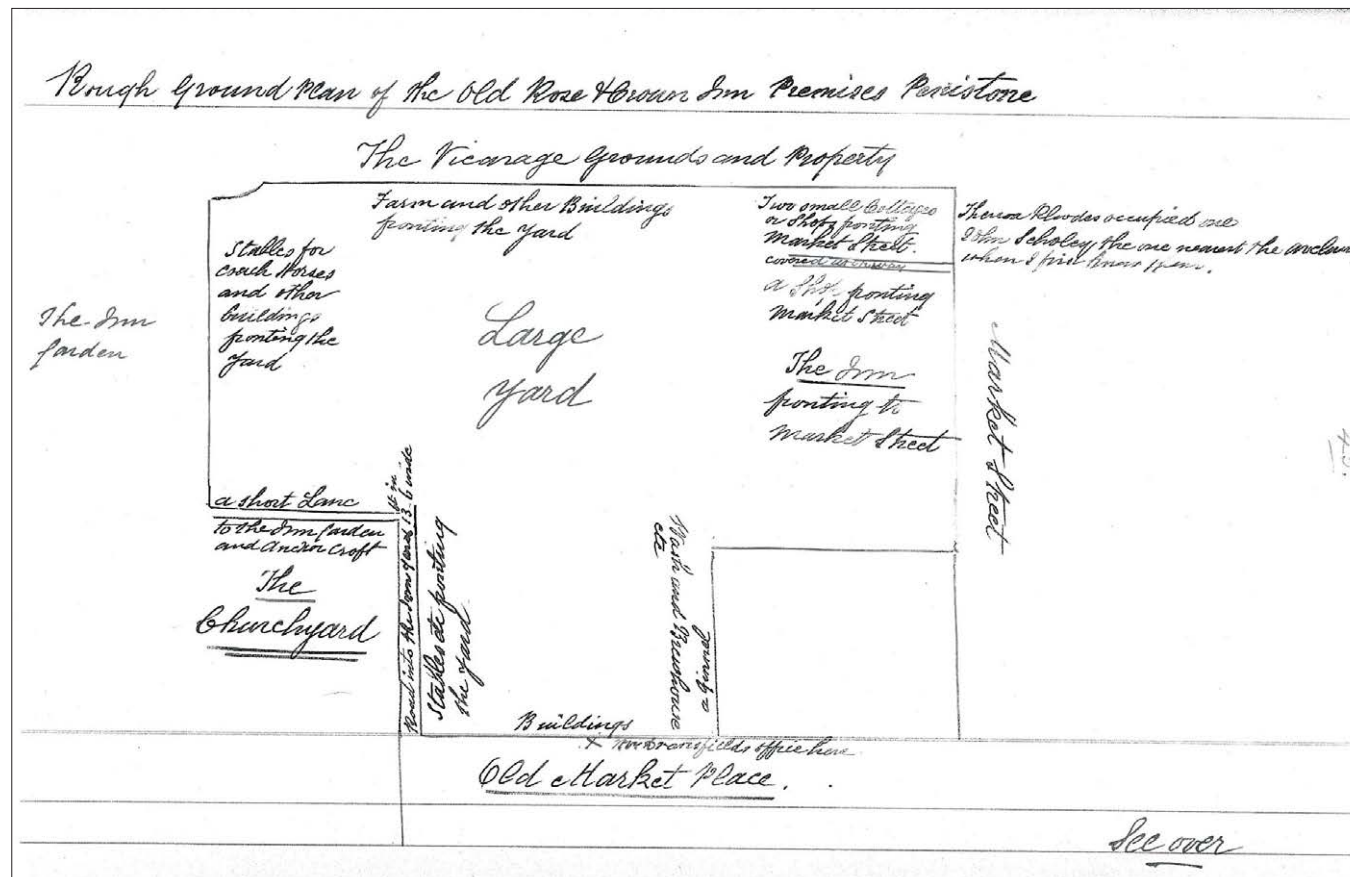 Rough Ground Plan of the Old Rose & Crown Inn Premises Penistone
The Vicarage Grounds and Property
Farm and other Buildings
fronting the Yard
Two small Cottages
or Shops fronting
Market Street.
covered archway
a Shop fronting
Market Street
The Inn
fronting to
Market Street
Rhodes occupied one
John Scholey the one nearest the
when I first knew them.
Stables for
coach Horses
and other
buildings
fronting the
Yard
The Inn
Garden
Large
Yard
Market Street
a short Lane
to the Inn Garden
and Croft
The
Churchyard
Road into the Inn Yard 13 ft 6 in wide
Stables &c fronting
the Yard
Wash and Brewhouse
etc
Buildings
office here
Old Market Place.
See over